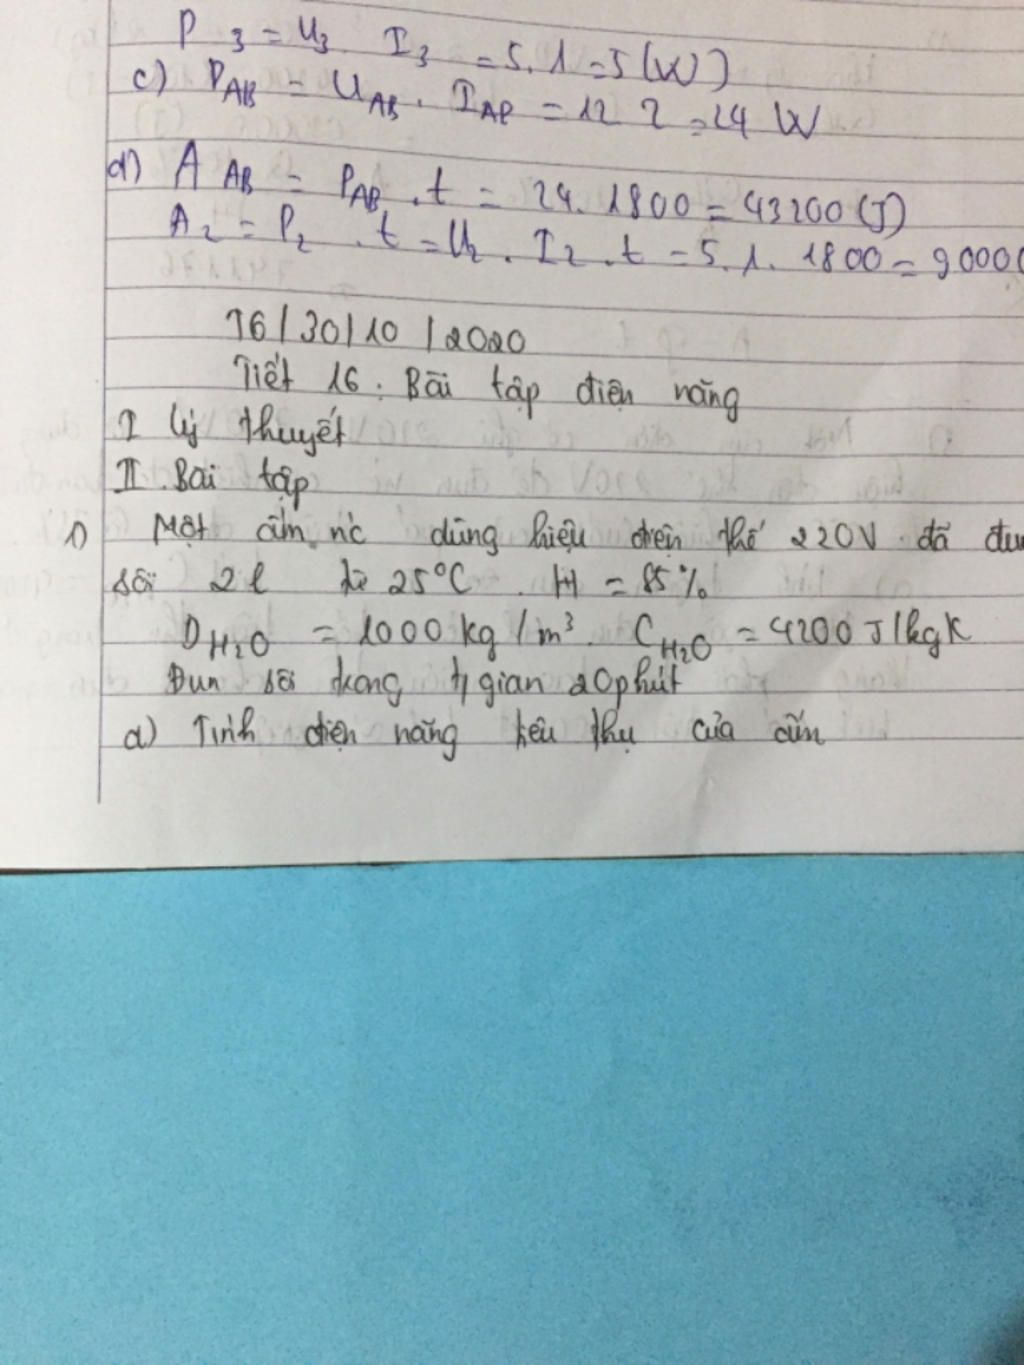 P3 = U3 . I3 = 5.1 = 5 (W)
c) PAB = UAB . IAB = 12 2 = 24 W
d) A AB = PAB . t = 24. 1800 = 43200 (J)
A2 = P2 . t = U2 . I2 . t = 5.1. 1800 = 9000(
T6/30/10/2020
Tiết 16 : Bài tập điện năng
I lý thuyết
II. Bài tập
1) Một ấm nc dùng hiệu điện thế 220V đã đu
sôi 2l từ 25°C . H = 85%
DH2O = 1000 kg/m³. CH2O = 4200 J/kgK
Đun sôi trong t/gian 20phút
a) Tính điện năng tiêu thụ của ấm